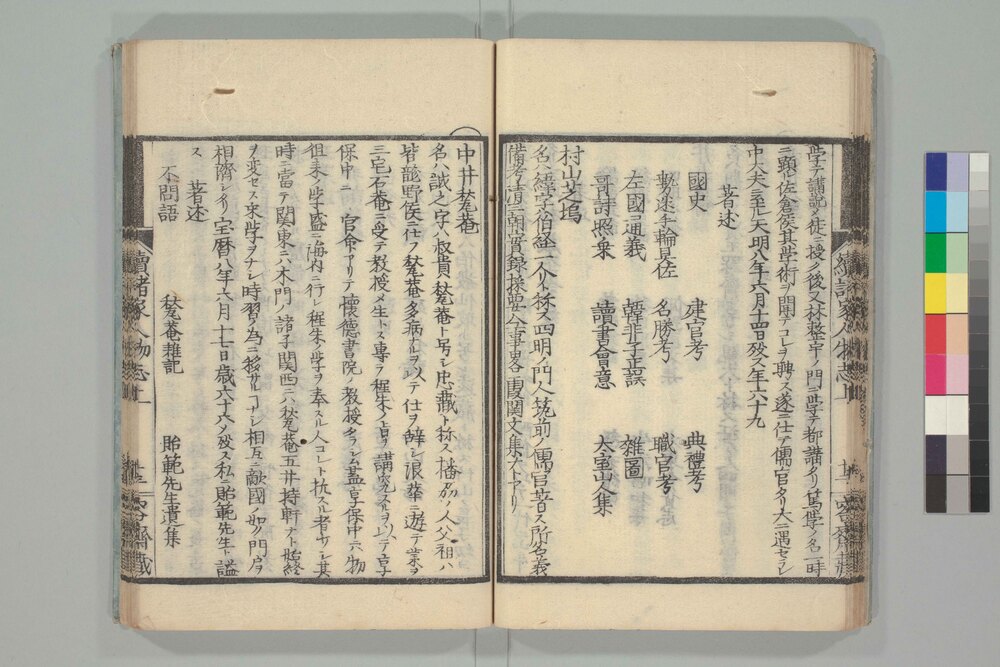 学テ講説ノ徒ニ授ク後又林整宇ノ門ニ学テ都講タリ篤学ノ名一時
ニ顕ル佐倉侯其學術ヲ聞テコレヲ興ス遂ニ仕テ儒官タリ大ニ遇セラレ
中大夫ニ至ル天明八年六月十四日歿ス年六十九
著述
國史　建官考　典禮考
名勝考　職官考
左國通義　韓非子正誤　雜圖
哥詩照乗　讀書會意　太室山人集
村山芝塢
名ハ緯字ハ伯經一ニ介ト称ス四明ノ門人筑前ノ儒官著ス所名義
備考清三朝實録採要今事畧霞関文集ナトアリ
中井甃菴
名ハ誠之字ハ叔貴甃菴ト号シ忠藏ト称ス播刕ノ人父祖ハ
皆龍野侯ニ仕フ甃菴多病ナルヲ以テ仕ヲ辞シ浪華ニ遊テ業ヲ
三宅石菴ニ受テ教授メ生トス専ラ程朱ノ旨ヲ講究スルヲ以テ享
保中ニ官命アリテ懐德書院ノ教授タラシム蓋享保中ニ物
徂来ノ学盛ニ海内ニ行レ程朱ノ学ヲ奉スル人コレト抗スル者ナシ其
時ニ當テ関東ニハ木門ノ諸子関西ニハ甃菴五井持軒ナト始終
ヲ変セス宋学ヲナシ時習ノ為ニ移サルヿナシ相互ニ敵國ノ如ク門戸ヲ
相濟シタリ宝暦八年六月十七日歳六十六メ歿ス私ニ貽範先生ト謚
ス　著述
不問語　甃菴雜記　貽範先生遺集
續諸家人物志上